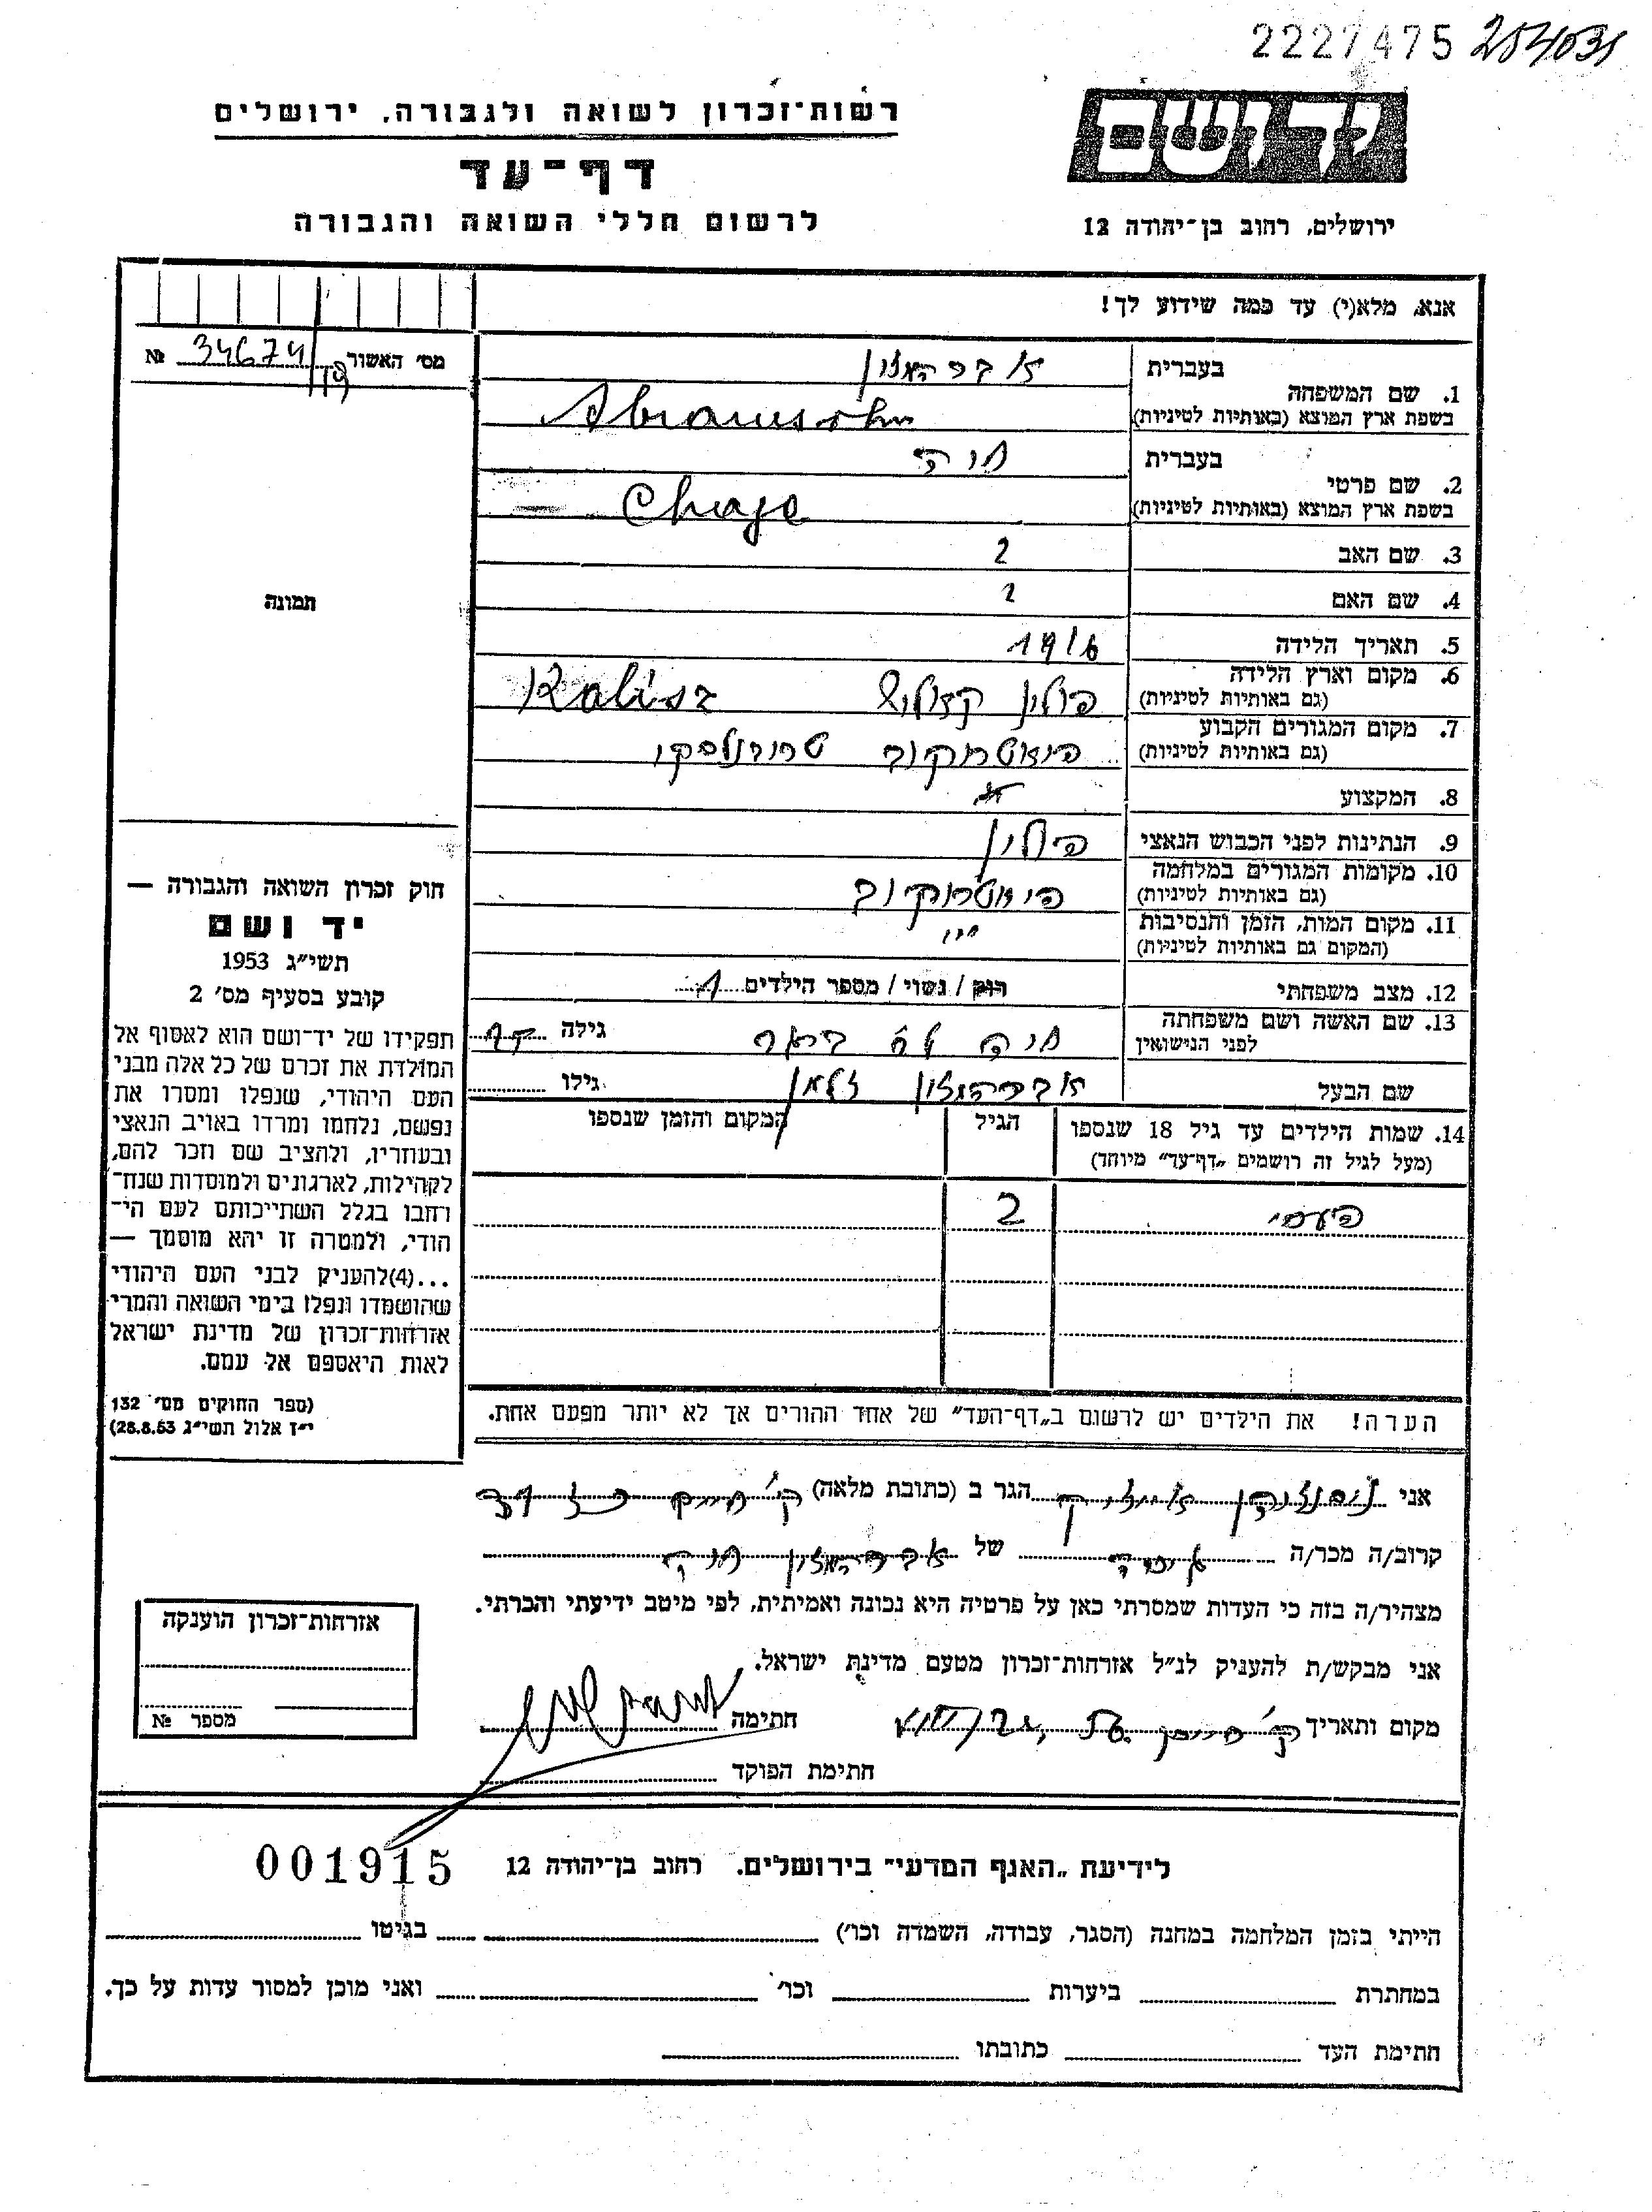 2227475 254031
רשות־זכרון לשואה ולגבורה, ירושלים
דף־עד
לרשום חללי השואה והגבורה
יד ושם
ירושלים, רחוב בן־יהודה 12
אנא, מלא(י) עד כמה שידוע לך!
מס׳ האשור 34674 №
1. שם המשפחה
בעברית אברהמזון
בשפת ארץ המוצא (באותיות לטיניות) Abramsohn
2. שם פרטי
בעברית חיה
בשפת ארץ המוצא (באותיות לטיניות) Chaje
3. שם האב ?
4. שם האם ?
5. תאריך הלידה
6. מקום וארץ הלידה
(גם באותיות לטיניות) פולין קאליש Kalisz
7. מקום המגורים הקבוע
(גם באותיות לטיניות) פיוטרקוב טריבונלסקי
8. המקצוע
9. הנתינות לפני הכבוש הנאצי פולין
10. מקומות המגורים במלחמה
(גם באותיות לטיניות) פיוטרקוב
11. מקום המות, הזמן והנסיבות
(המקום גם באותיות לטיניות)
12. מצב משפחתי רווק / נשוי / מספר הילדים 1
13. שם האשה ושם משפחתה
לפני הנישואין חיה גילה
שם הבעל אברהמזון זלמן גילו
14. שמות הילדים עד גיל 18 שנספו
(מעל לגיל זה רושמים „דף־עד״ מיוחד)
הגיל
המקום והזמן שנספו
2
הערה! את הילדים יש לרשום ב„דף־העד״ של אחד ההורים אך לא יותר מפעם אחת.
תמונה
חוק זכרון השואה והגבורה —
יד ושם
תשי״ג 1953
קובע בסעיף מס׳ 2
תפקידו של יד־ושם הוא לאסוף אל
המולדת את זכרם של כל אלה מבני
העם היהודי, שנפלו ומסרו את
נפשם, נלחמו ומרדו באויב הנאצי
ובעוזריו, ולהציב שם וזכר להם,
לקהילות, לארגונים ולמוסדות שנח־
רחבו בגלל השתייכותם לעם הי־
הודי, ולמטרה זו יהא מוסמך —
...(4)להעניק לבני העם היהודי
שהושמדו ונפלו בימי השואה והמרי
אזרחות־זכרון של מדינת ישראל
לאות היאספם אל עמם.
(ספר החוקים מס׳ 132
י״ז אלול תשי״ג 28.8.53)
אני הגר ב (כתובת מלאה) ק׳ חיים
קרוב/ה מכר/ה של אברהמזון חיה
מצהיר/ה בזה כי העדות שמסרתי כאן על פרטיה היא נכונה ואמיתית, לפי מיטב ידיעתי והכרתי.
אני מבקש/ת להעניק לנ״ל אזרחות־זכרון מטעם מדינת ישראל.
מקום ותאריך ק׳ חיים חתימה
חתימת הפוקד
אזרחות־זכרון הוענקה
מספר №
לידיעת „האגף המדעי״ בירושלים. רחוב בן־יהודה 12 001915
הייתי בזמן המלחמה במחנה (הסגר, עבודה, השמדה וכו׳) בגיטו
במחתרת ביערות וכו׳ ואני מוכן למסור עדות על כך.
חתימת העד כתובתו